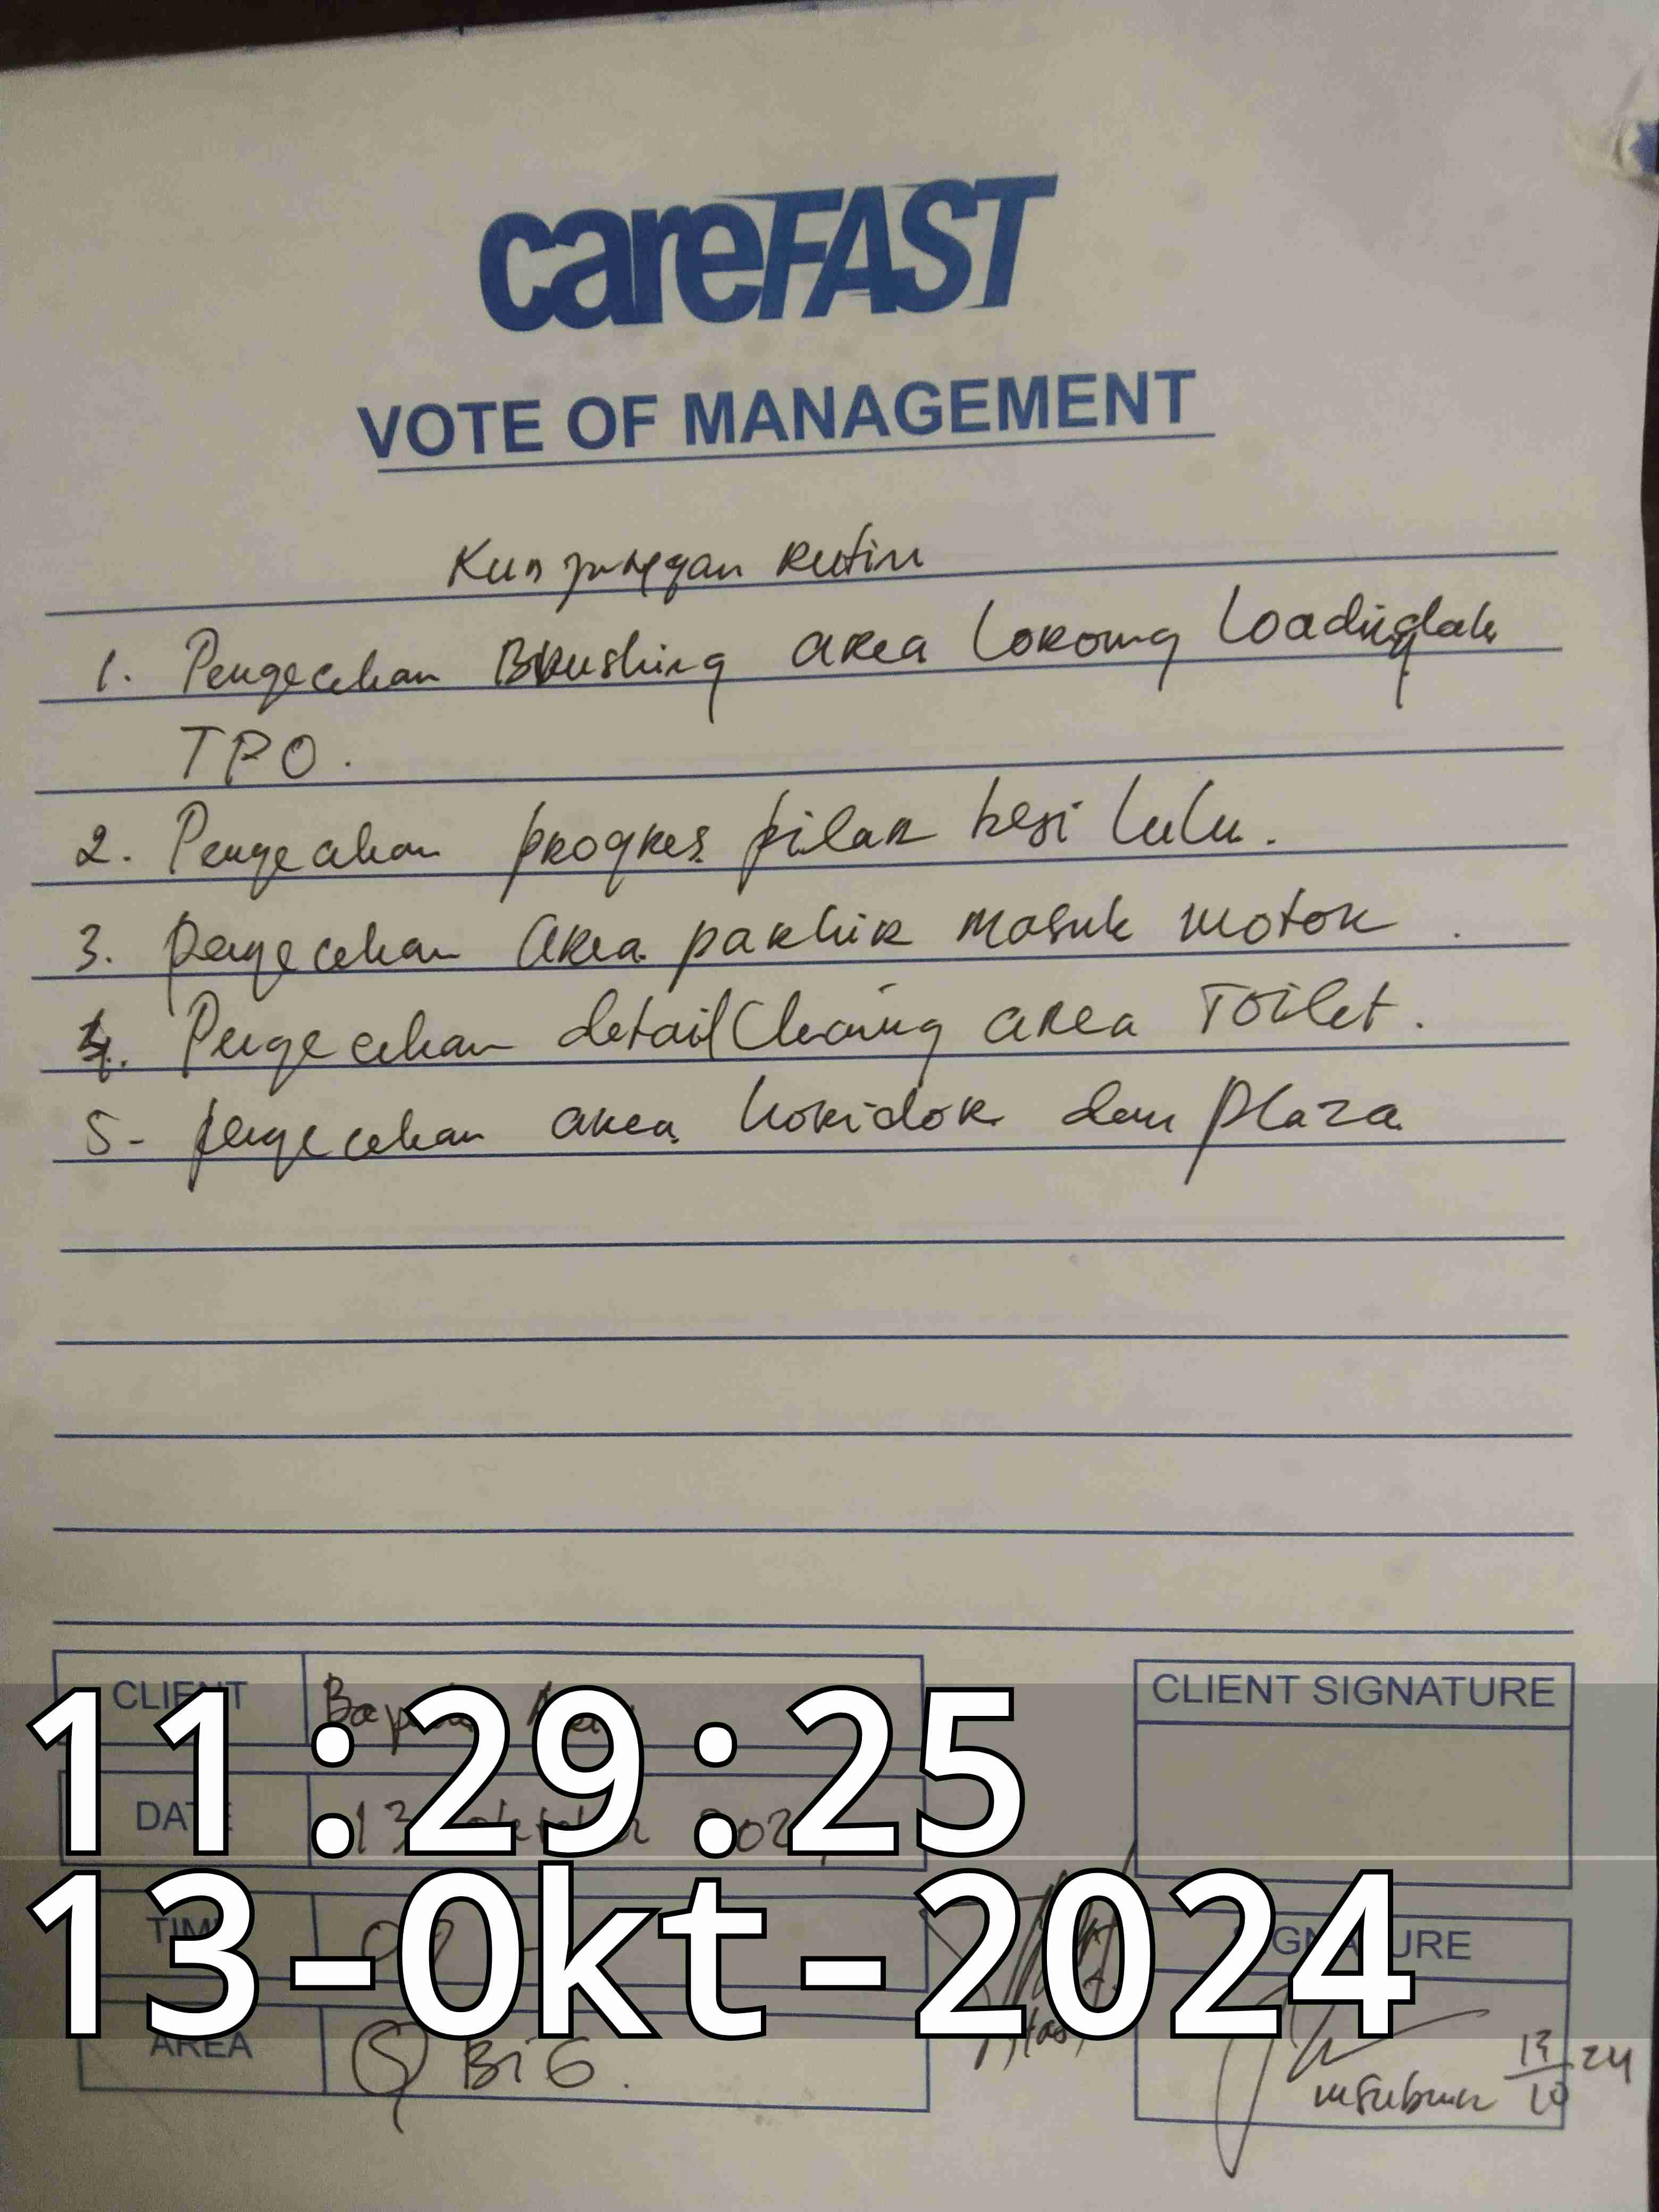 careFAST
VOTE OF MANAGEMENT
Kunjunggan Rutin
1. Pengecekan Brushing area Lorong Loadingdak
TPO.
2. Pengecekan progres pilar besi Lulu.
3. pengecekan Area parkir masuk motor.
4. Pengecekan detail Cleaning area Toilet.
5- pengecekan area koridor dan plaza
CLIENT
CLIENT SIGNATURE
11:29:25
DATE 13
13-Okt-2024
TIME
SIGNATURE
AREA BiG.
13/10 24